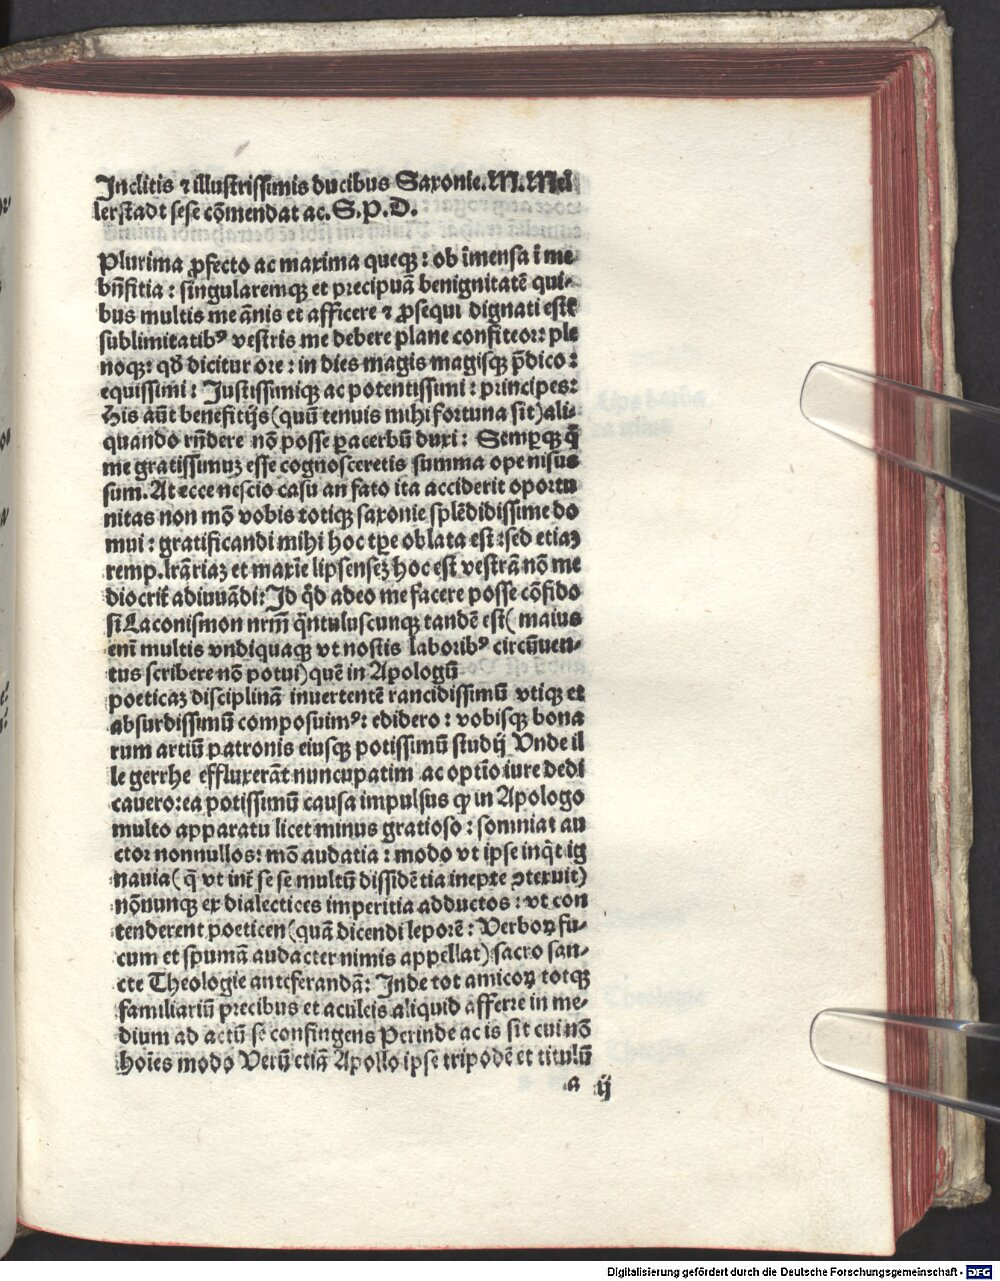 Inclitis ⁊ illustrissimis ducibus Saxonie. M. Mel
lerstadt sese cōmendat ac. S. P. D.
Plurima ꝓfecto ac maxima queqꝫ: ob īmensa ī me
bn̄fitia: singularemqꝫ et precipuā benignitatē qui⸗
bus multis me ānis et afficere ⁊ ꝓsequi dignati estē
sublimitatibꝰ vestris me debere plane confiteor: ple
noqꝫ: qd̄ dicitur ore: in dies magis magisqꝫ p̄dico:
equissimi: Justissimiqꝫ ac potentissimi: principes:
His aūt benefitijs (quū tenuis mihi fortuna sit) ali⸗
quando rn̄dere nō posse ꝑacerbū duxi: Sempqꝫ q̄
me gratissimuꝫ esse cognosceretis summa ope nisus
sum. At ecce nescio casu an fato ita acciderit oportu
nitas non mō vobis totiqꝫ saxonie splēdidissime do
mui: gratificandi mihi hoc tꝑe oblata est: sed etiaꝫ
remp. lrāriaꝫ et maxīe lipsenseꝫ hoc est vestrā nō me
diocrit̄ adiuuādi: Id q̄d adeo me facere posse cōfido
si Laconismon nrm̄ q̄ntuluscunqꝫ tandē est( maius
enī multis vndiquaqꝫ vt nostis laboribꝰ circūuen⸗
tus scribere nō potui) quē in Apologū
poeticaꝫ disciplinā inuertentē rancidissimū vtiqꝫ et
absurdissimū composuimꝰ: edidero: vobisqꝫ bona
rum artiū patronis eiusqꝫ potissimū studij Vnde il
le gerrhe effluxerāt nuncupatim ac optīo iure dedi
cauero: ea potissimū causa impulsus ꝙ in Apologo
multo apparatu licet minus gratioso: somniat au
ctor nonnullos: mō audatia: modo vt ipse inq̄t ig
nauia( q̄ vt int̄ se se multū dissidētia inepte ꝯtexuit)
nōnunqꝫ ex dialectices imperitia adductos: vt con
tenderent poeticen (quā dicendi leporē: Verboꝝ fu⸗
cum et spumā audacter nimis appellat) sacro san⸗
cte Theologie anteferandā: Inde tot amicoꝝ totqꝫ
familiariū precibus et aculeis aliquid afferre in me⸗
dium ad actū se confingens Perinde ac is sit cui nō
hoīes modo Verū etiā Apollo ipse tripodē et titulū
a ij
Digitalisierung gefördert durch die Deutsche Forschungsgemeinschaft - DFG